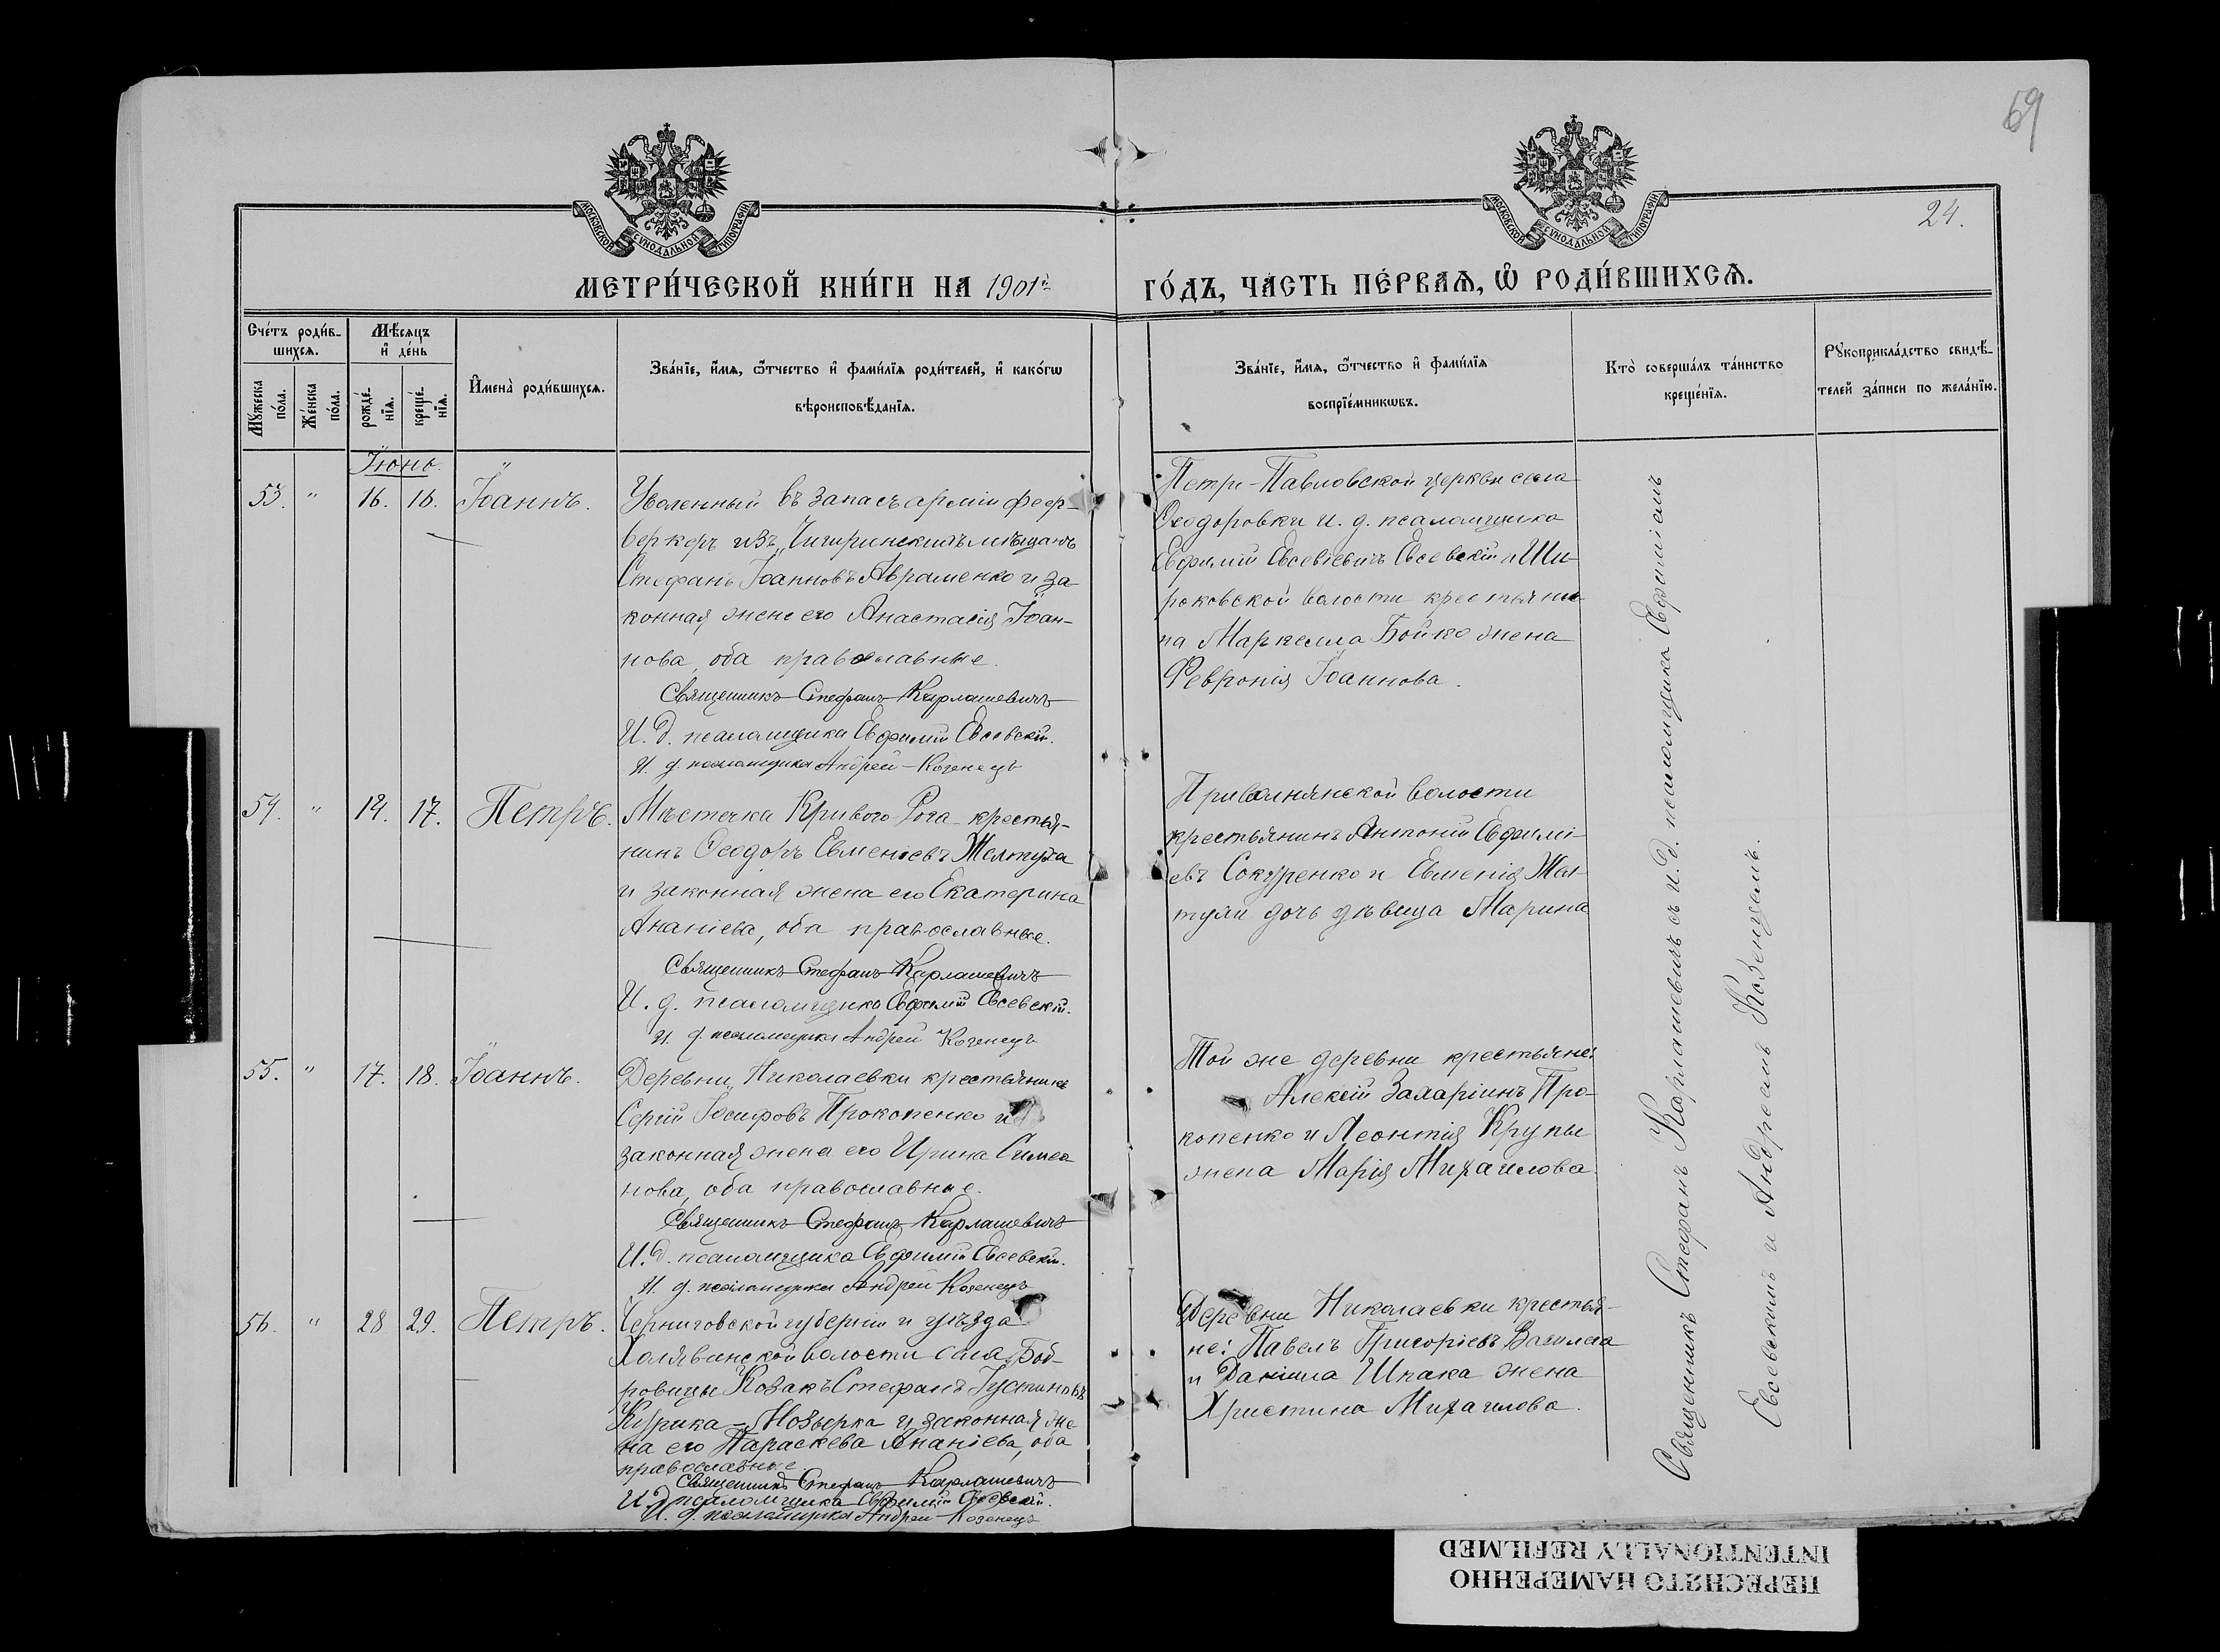 69
24.
МОСКОВСКОЙ СУНОДАЛЬНОЙ ТИПОГРАФІИ
МОСКОВСКОЙ СУНОДАЛЬНОЙ ТИПОГРАФІИ
МЕТРИ́ЧЕСКОЙ КНИ́ГИ НА 1901й ГО́ДЪ, ЧАСТЬ ПЕ́РВАѦ, Ѡ҆ РОДИ́ВШИХСѦ.
Сче́тъ роди́в-
шихсѧ.
Мѣ́сяцъ
и҆ де́нь
Мꙋ́жеска
по́ла.
Же́нска
по́ла.
рожде́-
нїѧ.
креще́-
нїѧ.
И҆мена̀ роди́вшихсѧ.
Зва́нїе, и҆́мѧ, ѻ҆́тчество и҆ фами́лїѧ роди́телей, и҆ како́гѡ
вѣроисповѣ́данїѧ.
Зва́нїе, и҆́мѧ, ѻ҆́тчество и҆ фами́лїѧ
воспрїе́мникѡвъ.
Кто̀ соверша́лъ та́инство
креще́нїѧ.
Рꙋкоприкла́дство свидѣ́-
телей за́писи по жела́нїю.
Іюнь.
53. " 16. 16. Іоаннъ.
Уволенный въ запасъ арміи феер-
веркеръ изъ Чигиринскихъ мѣщанъ
Стефанъ Іоанновъ Авраменко и за-
конная жена его Анастасія Іоан-
нова, оба православные.
Священникъ Стефанъ Карлашевичъ
И. д. псаломщика Евфимій Евсевскій.
И. д. псаломщика Андрей Козенецъ
Петро-Павловской церкви села
Ѳеодоровки и. д. псаломщика
Евфимій Евсевіевичъ Евсевскій и Ши-
роковской волости крестьяни-
на Маркелла Бойко жена
Февронія Іоаннова.
54. " 14. 17. Петръ.
Мѣстечка Кривого Рога крестья-
нинъ Ѳеодоръ Евменіевъ Желтуха
и законная жена его Екатерина
Ананіева, оба православные.
Священникъ Стефанъ Карлашевичъ
И. д. псаломщика Евфимій Евсевскій.
И. д. псаломщика Андрей Козенецъ
Привольнянской волости
крестьянинъ Антоній Евфимі-
евъ Сокуренко и Евменія Жел-
тухи дочь дѣвица Марина
55. " 17. 18. Іоаннъ.
Деревни Николаевки крестьянинъ
Сергій Іосифовъ Прокопенко и
законная жена его Ирина Симео-
нова, оба православные.
Священникъ Стефанъ Карлашевичъ
И. д. псаломщика Евфимій Евсевскій.
И. д. псаломщика Андрей Козенецъ
Той же деревни крестьяне:
Алексій Захаріинъ Про-
копенко и Леонтія Крупы
жена Марія Михаилова.
56. " 28 29. Петръ.
Черниговской губерніи и уѣзда
Халявинской волости села Боб-
ровицы Козакъ Стефанъ Іустиновъ
Мозырка и законная же-
на его Параскева Ананіева, оба
православные.
Священникъ Стефанъ Карлашевичъ
И. д. псаломщика Евфимій Евсевскій.
И. д. псаломщика Андрей Козенецъ
Деревни Николаевки крестья-
не: Павелъ Григоріевъ Василега
и Даніила Шпака жена
Христина Михаилова.
Священникъ Стефанъ Карлашевичъ съ и. д. псаломщика Евфиміемъ
Евсевскимъ и Андреемъ Козенцемъ.
ПЕРЕСНЯТО НАМЕРЕННО
INTENTIONALLY REFILMED